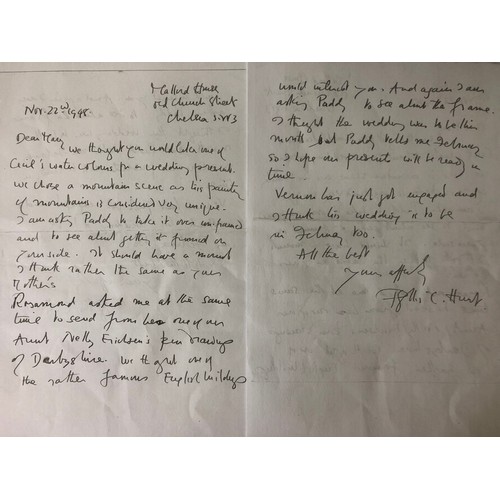 Mallord House
Old Church Street
Chelsea S.W.3
Nov. 22nd 1948.
Dear Mary
we thought you would like one of
Cecil's water colours for a wedding present.
We chose a mountain scene as his painting
of mountains is considered very unique.
I am asking Paddy to take it over un-framed
and to see about getting it framed on
your side. It should have a mount
I think rather the same as your
Mother's
Rosamond asked me at the same
time to send from her one of our
Aunt Nelly Erichsen's pen drawings
of Derbyshire. We thought one of
the rather famous English buildings
would interest you. And again I am
asking Paddy to see about the frame.
I thought the wedding was to be this
month but Paddy tells me February
so I hope our presents will be ready in
time.
Vernon has just got engaged and
I think his wedding is to be
in February too.
All the best
Yours affectly
Phyllis C. Hunt